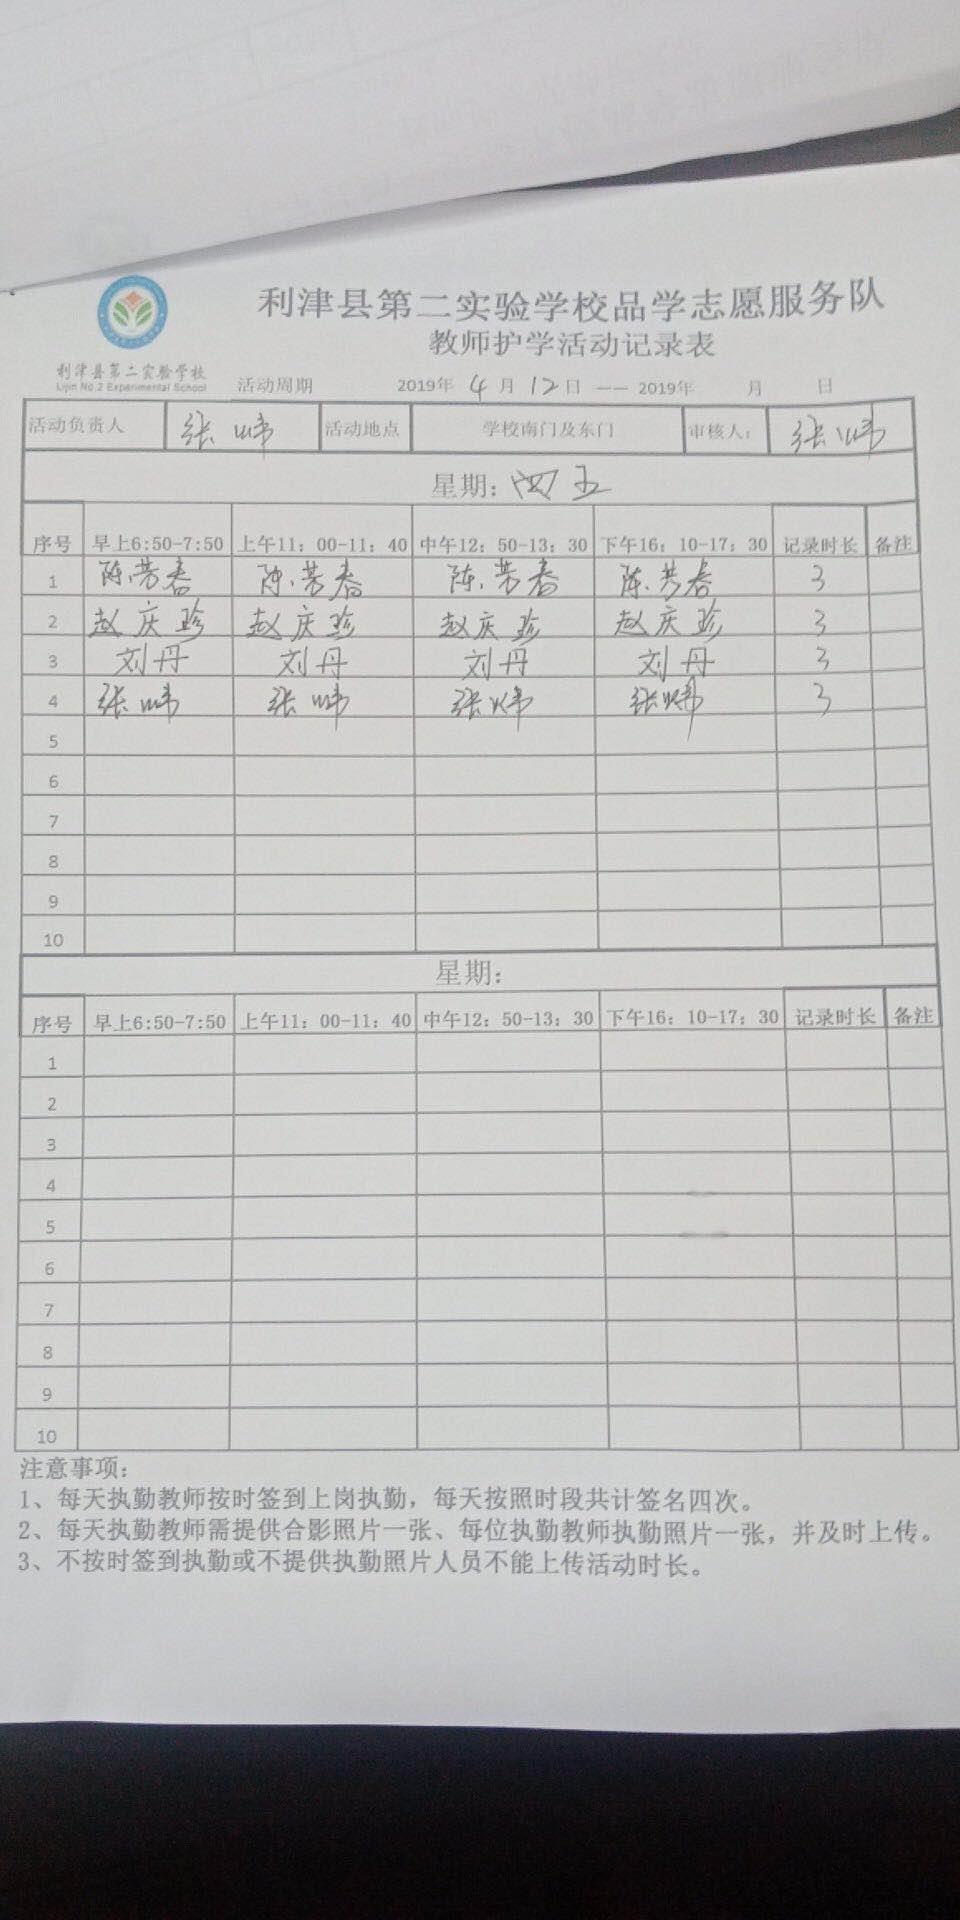 利津县第二实验学校品学志愿服务队
教师护学活动记录表
利津县第二实验学校
Lijin No.2 Experimental School
活动周期 2019年 4 月 12 日 —— 2019年 月 日
活动负责人 张 活动地点 学校南门及东门 审核人： 张
星期： 五
序号 早上6:50-7:50 上午11：00-11：40 中午12：50-13：30 下午16：10-17：30 记录时长 备注
1 陈芳春 陈芳春 陈芳春 陈芳春 3
2 赵庆珍 赵庆珍 赵庆珍 赵庆珍 3
3 刘丹 刘丹 刘丹 刘丹 3
4 张 张 张 张 3
5
6
7
8
9
10
星期：
序号 早上6:50-7:50 上午11：00-11：40 中午12：50-13：30 下午16：10-17：30 记录时长 备注
1
2
3
4
5
6
7
8
9
10
注意事项：
1、每天执勤教师按时签到上岗执勤，每天按照时段共计签名四次。
2、每天执勤教师需提供合影照片一张、每位执勤教师执勤照片一张，并及时上传。
3、不按时签到执勤或不提供执勤照片人员不能上传活动时长。